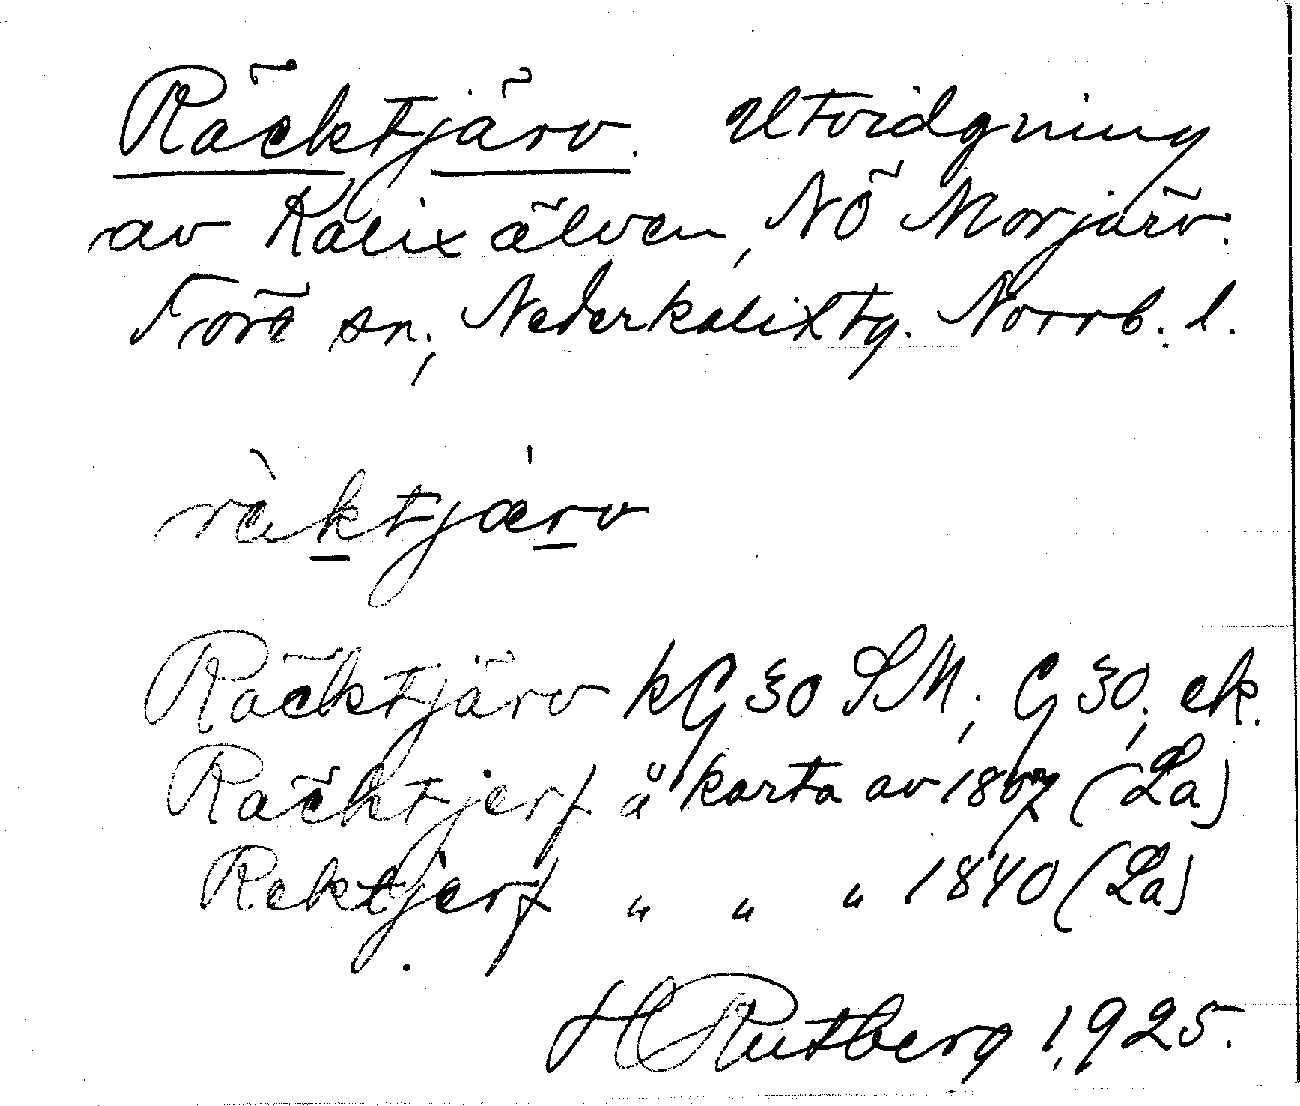 Räcktjärv. Utvidgning
av Kalix älven, NÖ Morjärv.
Töre sn, Nederkalix tg. Norrb. l.
ràktjærv
Räcktjärv kG 30 SM; G 30, ek.
Räcktjerf å karta av 1807 (La)
Rektjerf " " " 1840 (La)
H Rutberg 1925.